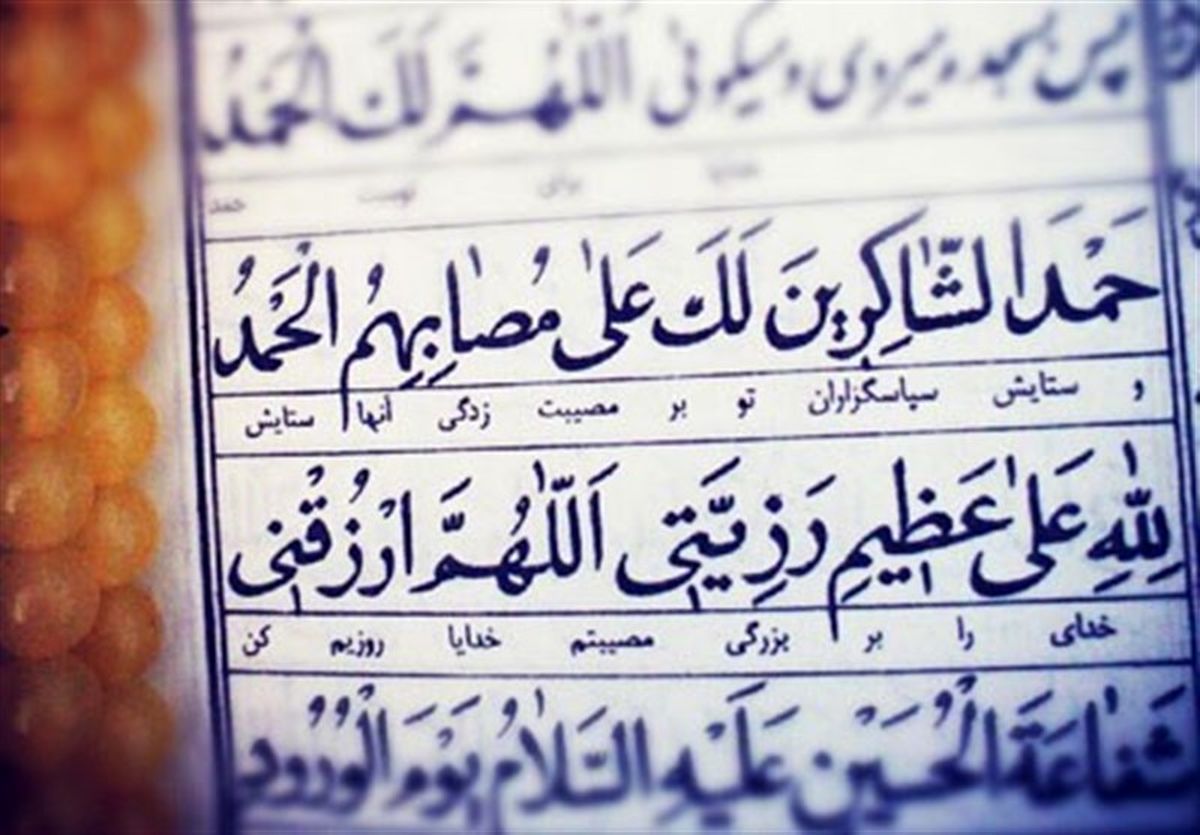 پس بسجده میروی و میگوئی اَللّٰهُمَّ لَكَ الْحَمْدُ
خدایا برای تست حمد
حَمْدَ الشّٰاكِرِينَ لَكَ عَلىٰ مُصٰابِهِمُ الْحَمْدُ
و ستایش سپاسگزاران تو بر مصیبت زدگی آنها ستایش
لِلّٰهِ عَلىٰ عَظِيمِ رَزِيَّتِي اَللّٰهُمَّ ارْزُقْنِي
خدای را بر بزرگی مصیبتم خدایا روزیم کن
شَفٰاعَةَ الْحُسَيْنِ عَلَيْهِ السَّلٰامُ يَوْمَ الْوُرُودِ